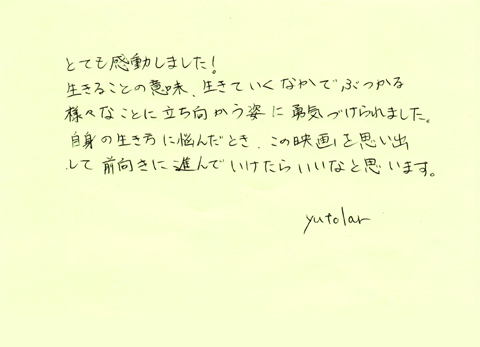 とても感動しました!
生きることの意味、生きていくなかでぶつかる
様々なことに立ち向かう姿に勇気づけられました。
自身の生き方に悩んだとき、この映画を思い出
して前向きに進んでいけたらいいなと思います。
yutolar